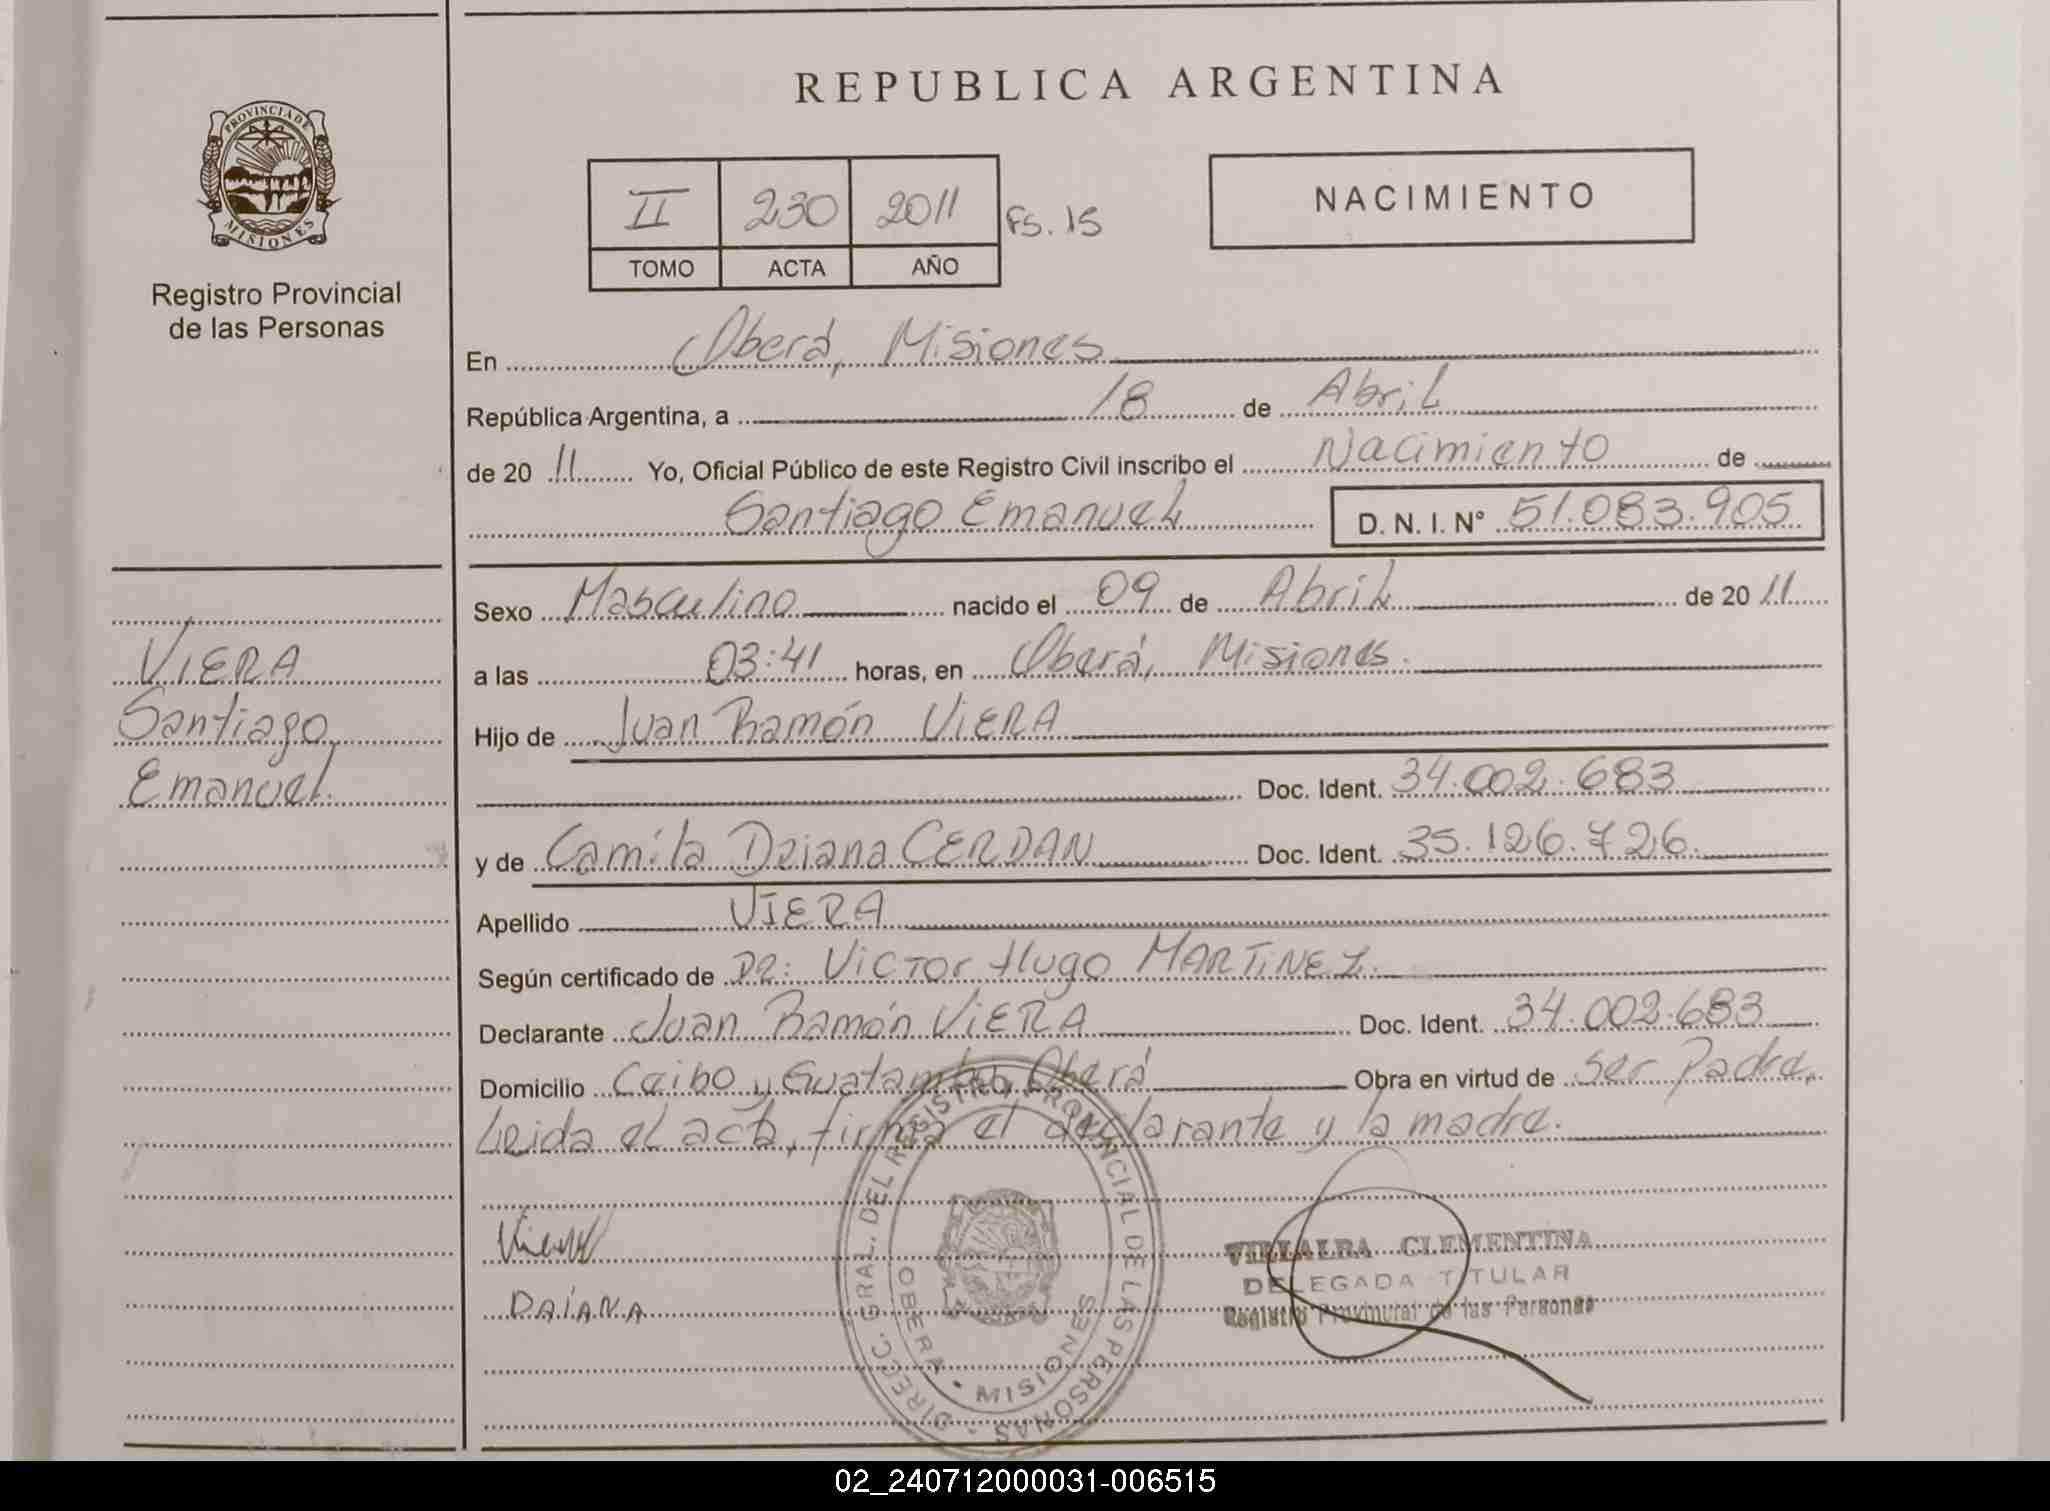 REPUBLICA ARGENTINA
PROVINCIA DE
MISIONES
Registro Provincial
de las Personas
II 230 2011 Fs. 15
TOMO ACTA AÑO
NACIMIENTO
En Oberá, Misiones
República Argentina, a 18 de Abril
de 20 11 Yo, Oficial Público de este Registro Civil inscribo el Nacimiento de
Santiago Emanuel D. N. I. N° 51.083.905
Sexo Masculino nacido el 09 de Abril de 20 11
a las 03:41 horas, en Oberá, Misiones.
Hijo de Juan Ramón VIERA
Doc. Ident. 34.002.683
y de Camila Daiana CERDAN Doc. Ident. 35.126.726.
Apellido VIERA
Según certificado de DR: Victor Hugo MARTINEZ.
Declarante Juan Ramón VIERA Doc. Ident. 34.002.683
Domicilio Ceibo y Guatambú, Oberá Obra en virtud de Ser Padre.
Leida el acta, firma el declarante y la madre.
VIERA
Santiago
Emanuel.
DAIANA
DIRECC. GRAL. DEL REGISTRO PROVINCIAL DE LAS PERSONAS
OBERA • MISIONES
VILLALBA CLEMENTINA
DELEGADA TITULAR
Registro Provincial de las Personas
02_240712000031-006515